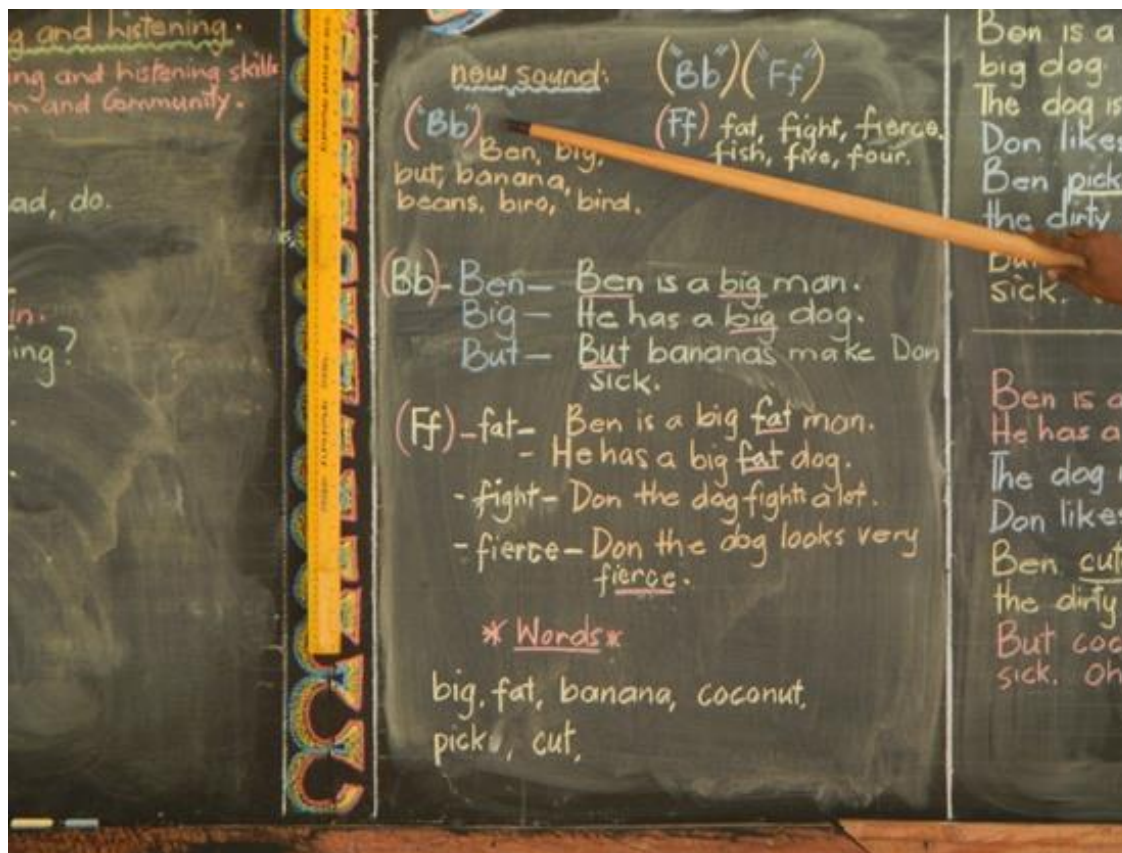 g and Listening.
ing and Listening skills
m and Community.
ad, do.
in.
ing?
new sound:
("Bb") ("Ff")
("Bb")
Ben, big,
but, banana,
beans, biro, bird.
(Ff) fat, fight, fierce,
fish, five, four.
(Bb) - Ben - Ben is a big man.
Big - He has a big dog.
But - But bananas make Don
sick.
(Ff) - fat - Ben is a big fat man.
- He has a big fat dog.
- fight - Don the dog fights a lot.
- fierce - Don the dog looks very
fierce.
* Words *
big, fat, banana, coconut,
pick, cut,
Ben is a
big dog
The dog is
Don likes
Ben pick
the dirty
But
sick.
Ben is a
He has a
The dog
Don likes
Ben cut
the dirty
But coc
sick. Oh